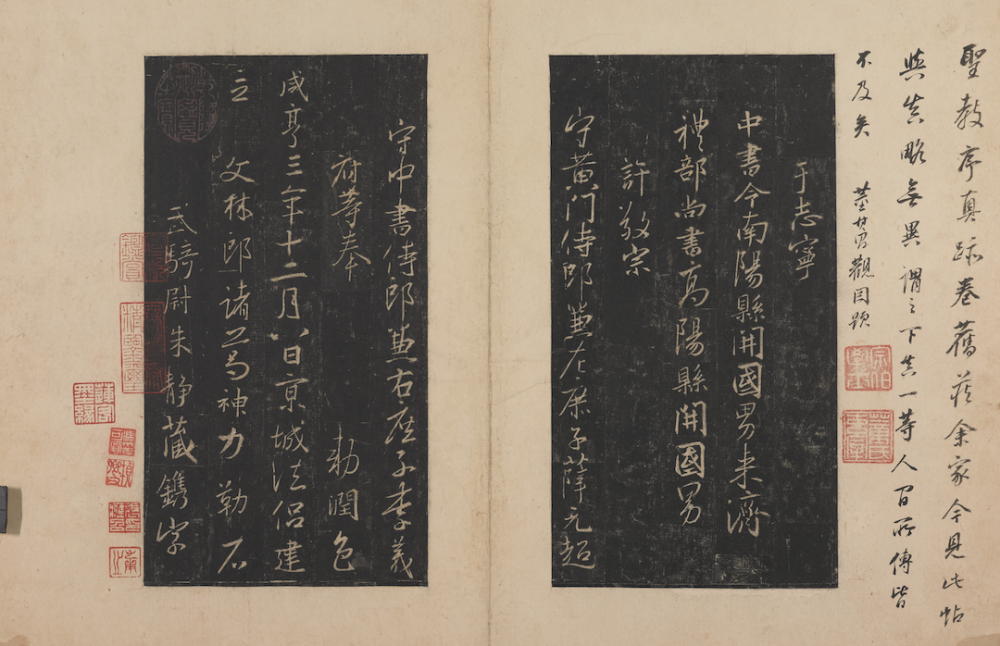 聖教序真跡卷舊藏余家今見此帖
與真略無異謂之下真一等人間所傳皆
不及矣 董其昌觀因題
于志寧
中書令南陽縣開國男來濟
禮部尚書高陽縣開國男
許敬宗
守黃門侍郎兼左庶子薛元超
守中書侍郎兼右庶子李義
府等奉 勅潤色
咸亨三年十二月八日京城法侶建
立 文林郎諸葛神力勒石
武騎尉朱靜藏鐫字